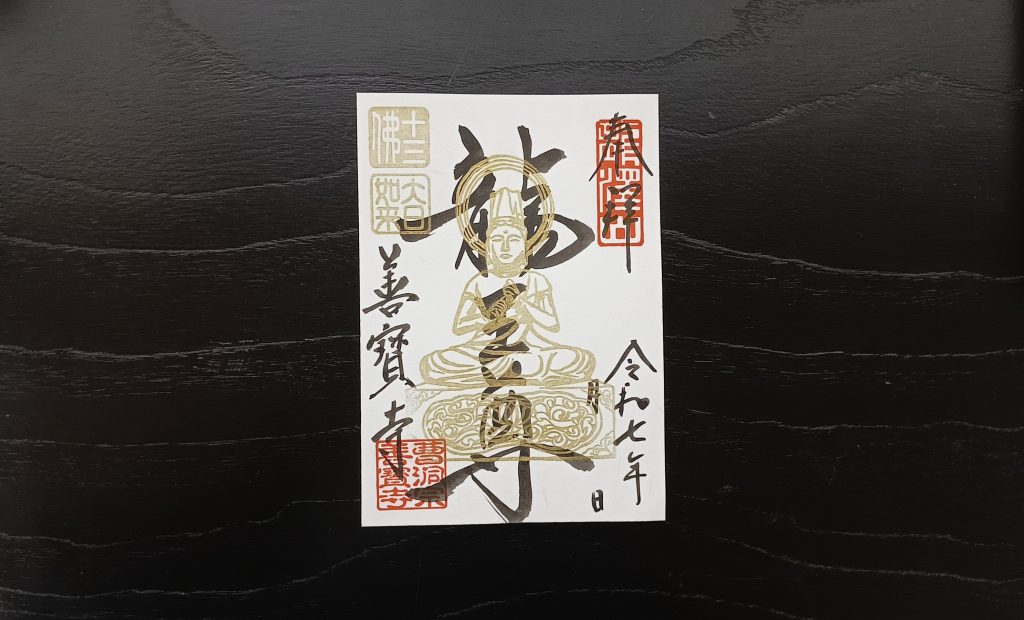 奉拝
令和七年
月 日
龍王尊
十三
佛
大日
如来
善寶寺
曹洞宗
善寶寺